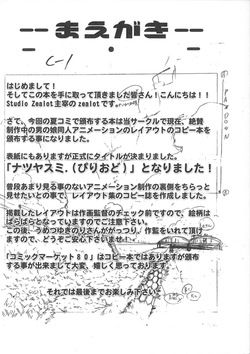 --まえがき--
C-1
はじめまして！
そしてこの本を手に取って頂きました皆さん！こんにちは！！
Studio Zealot主宰のzealotです。
さて、今回の夏コミで頒布する本は当サークルで現在、絶賛
制作中の男の娘同人アニメーションのレイアウトのコピー本を
頒布する事になりました。
表紙にもありますが正式にタイトルが決まりました。
「ナツヤスミ.（ぴりおど）」となりました！
普段あまり見る事のないアニメーション制作の裏側をちらっと
見せたいとの事で、レイアウト集のコピー誌を作成しました。
掲載したレイアウトは作画監督のチェック前ですので、絵柄は
ばらばらとなっていますのでご注意下さい。
この後、うめつゆきのりさんががっつり、作監をいれて頂け
ますので、どうぞご安心下さいませ
「コミックマーケット80」はコピー本ではありますが頒布
する事が出来まして大変、嬉しく思っております。
それでは最後までお楽しみ下さい。
PAN DOWN